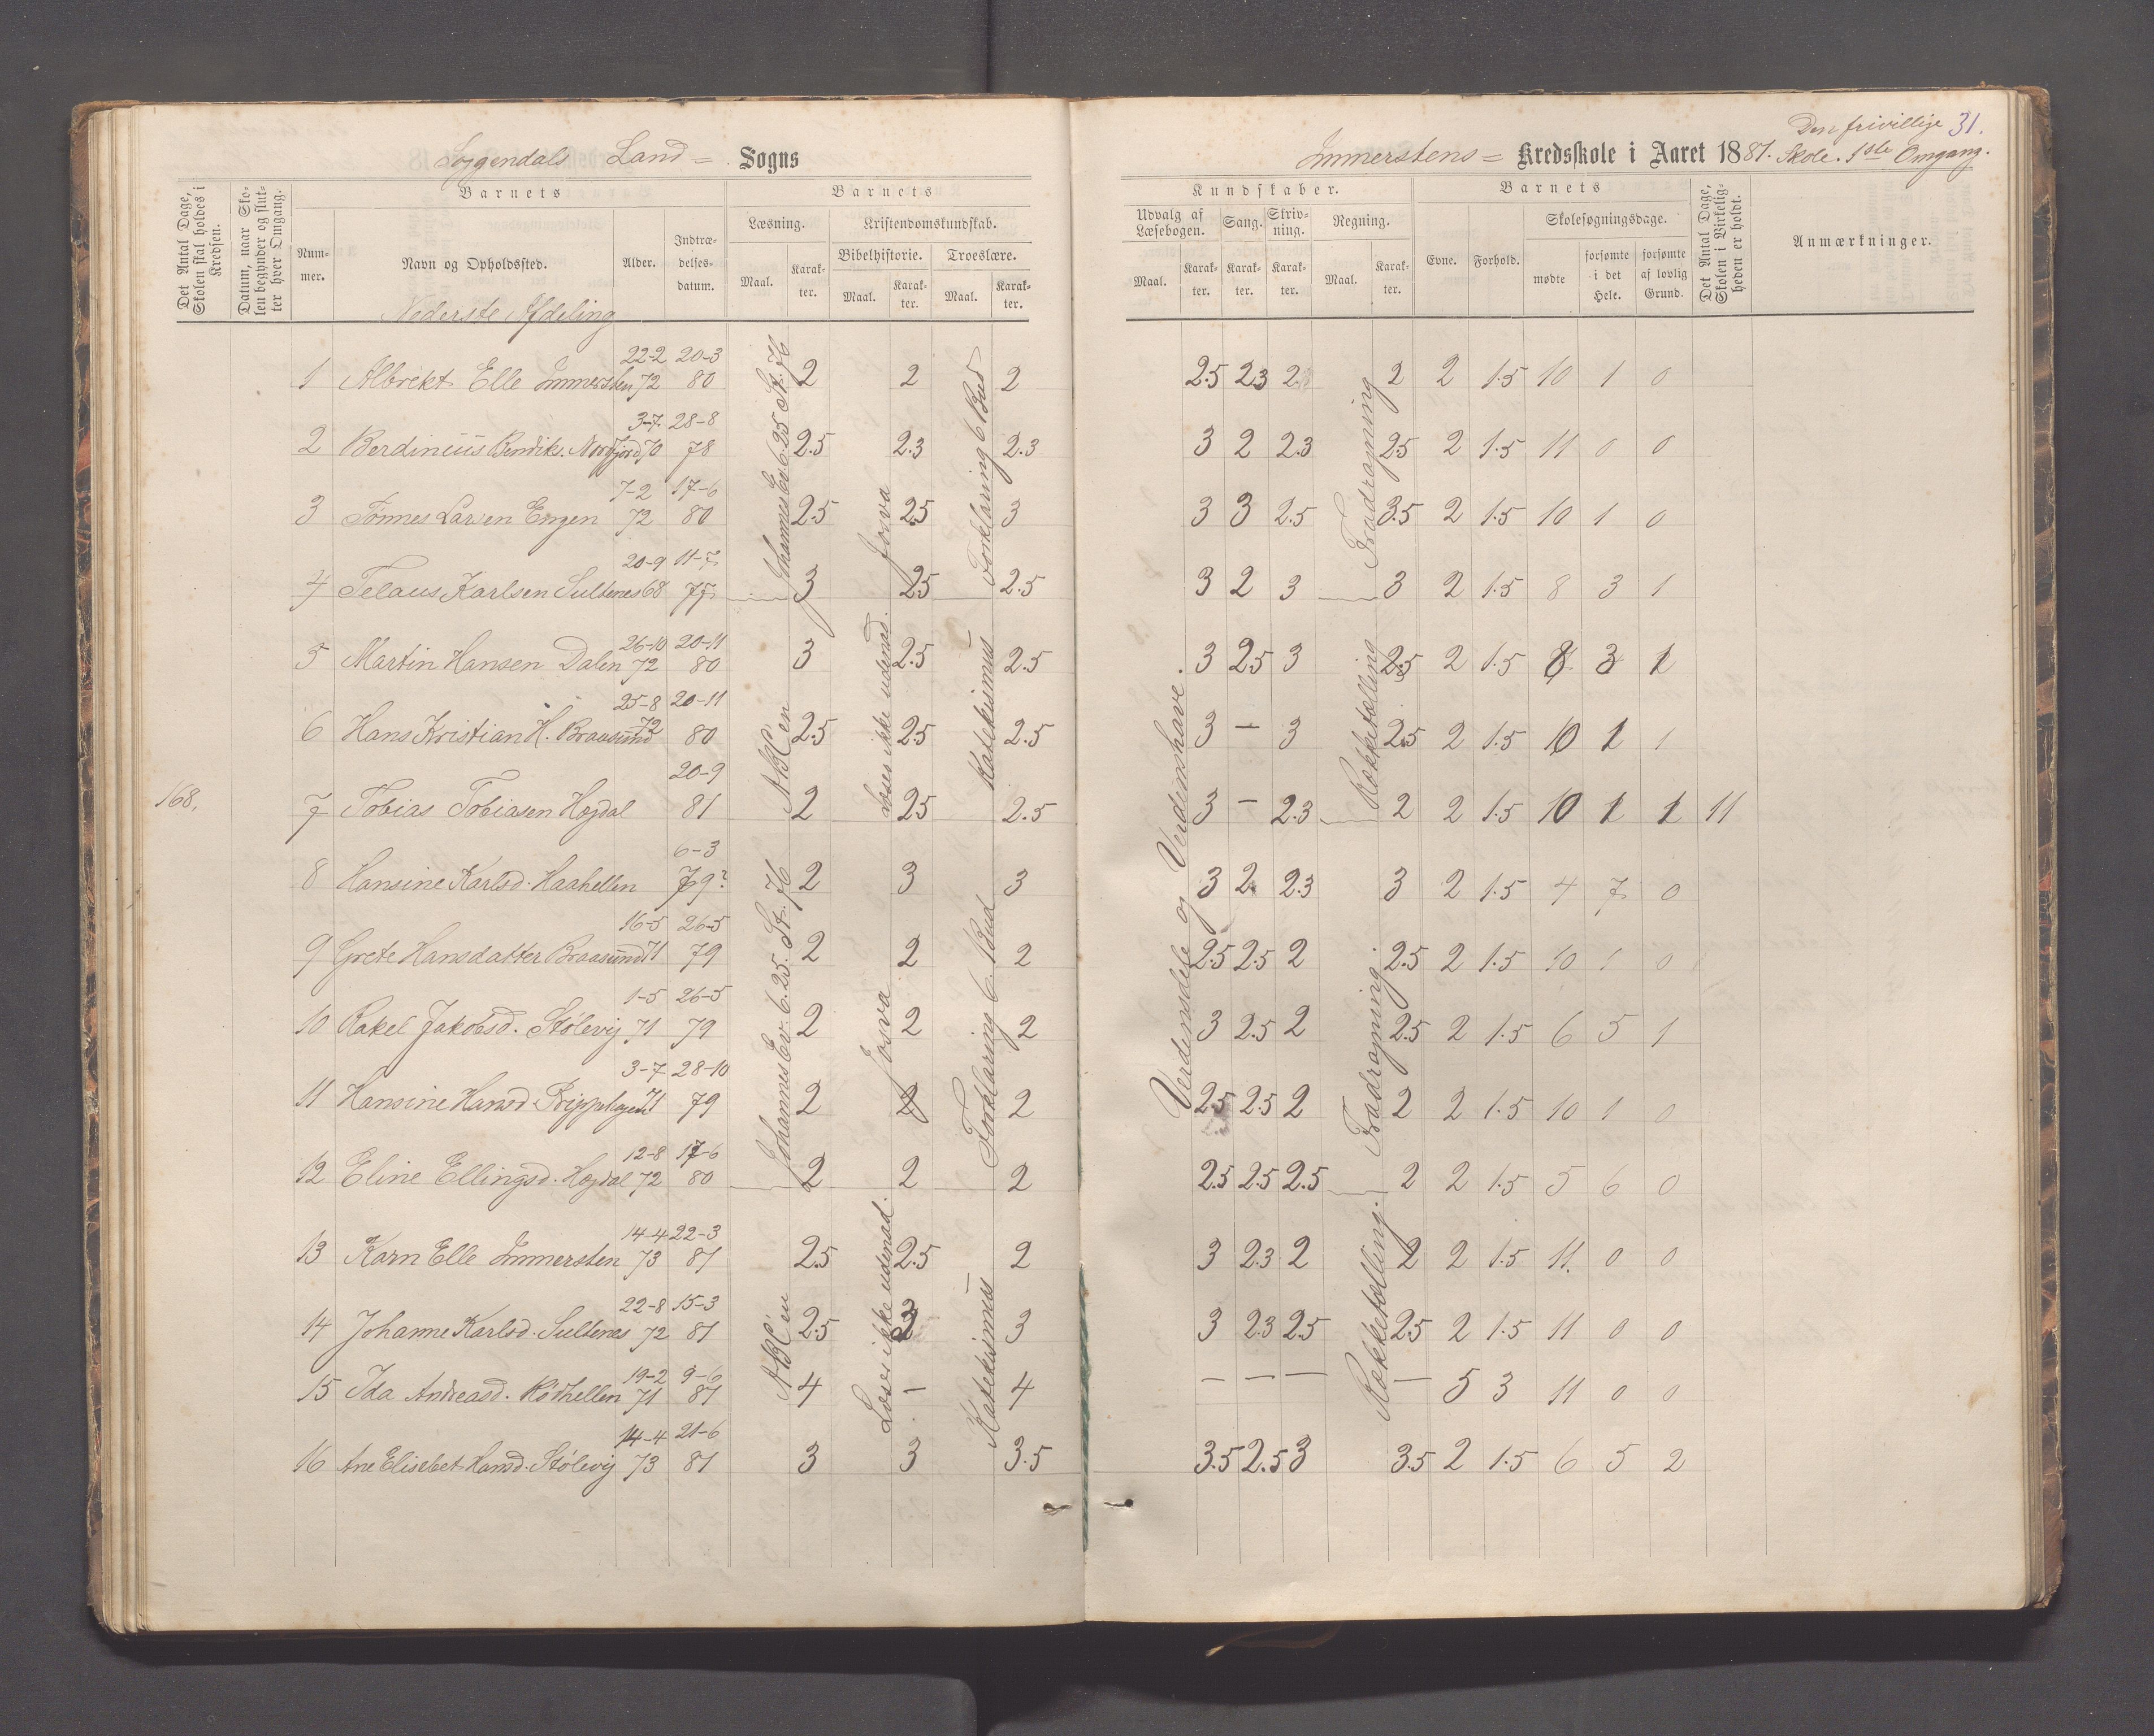 Soggendals Land= Sogns
Det Antal Dage, Skolen skal holdes i Kredsen.
Datum, naar Skolen begynder og slutter hver Omgang.
Barnets
Nummer.
Navn og Opholdssted.
Alder.
Indtrædelsesdatum.
Barnets
Læsning.
Maal.
Karakter.
Kristendomskundskab.
Bibelhistorie.
Maal.
Karakter.
Troeslære.
Maal.
Karakter.
Nederste Afdeling
1 Albrekt Elle Immersten 22-2 72 20-3 80 2 2 2
2 Berdinius Bendiks. Nordfjord 3-7 70 28-8 78 2.5 2.3 2.3
3 Tønnes Larsen Engen 7-2 72 17-6 80 2.5 2.5 3
4 Telaus Karlsen Sultenes 20-9 68 11-7 77 3 2.5 2.5
5 Martin Hansen Dalen 26-10 72 20-11 80 3 2.5 2.5
6 Hans Kristian H. Braasund 25-8 72 20-11 80 2.5 2.5 2.5
168. 7 Tobias Tobiasen Hogdal 20-9 81 2 2.5 2.5
8 Hansine Karlsd. Haahellen 6-3 79? 2 3 3
9 Grete Hansdatter Braasund 16-5 71 26-5 79 2 2 2
10 Rakel Jakobsd. Stølevig 1-5 71 26-5 79 2 2 2
11 Hansine Hansd. 3-7 71 28-10 79 2 2 2
12 Eline Ellingsd. Hogdal 12-8 72 17-6 80 2 2 2
13 Karn Elle Immersten 14-4 73 22-3 81 2.5 2.5 2
14 Johanne Karlsd. Sultenes 22-8 72 15-3 81 2.5 3 3
15 Ida Andreasd. Rødhellen 19-2 71 9-6 81 4 – 4
16 Ane Elisebet Hansd. Stølevig 14-4 73 21-6 81 3 3 3.5
Johannes Ev. 6.25. St. 76
ABC en
Johannes Ev. 6.25. St. 76
ABC en
Josva
Læses ikke udenad.
Josva
Læses ikke udenad.
Forklaring 6 Bud
Katekismus
Forklaring 6. Bud
Katekismus
Immerstens= Kredsskole i Aaret 1881. Den frivillige Skole. 1ste Omgang.
31.
Kundskaber.
Udvalg af Læsebogen.
Maal.
Karakter.
Sang.
Karakter.
Skrivning.
Karakter.
Regning.
Maal.
Karakter.
Barnets
Evne.
Forhold.
Skolesøgningsdage.
mødte
forsømte i det Hele.
forsømte af lovlig Grund.
Det Antal Dage, Skolen i Virkeligheden er holdt.
Anmærkninger.
2.5 2.3 2 2 2 1.5 10 1 0
3 2 2.3 2.5 2 1.5 11 0 0
3 3 2.5 3.5 2 1.5 10 1 0
3 2 3 3 2 1.5 8 3 1
3 2.5 3 2.5 2 1.5 8 3 1
3 – 3 2.5 2 1.5 10 1 1
3 – 2.3 2 2 1.5 10 1 1 11
3 2 2.3 3 2 1.5 4 7 0
2.5 2.5 2 2.5 2 1.5 10 1 0
3 2.5 2 2.5 2 1.5 6 5 1
2.5 2.5 2 2 2 1.5 10 1 0
2.5 2.5 2.5 2 2 1.5 5 6 0
3 2.3 2 2 2 1.5 11 0 0
3 2.3 2.5 2.5 2 1.5 11 0 0
– – – – 5 3 11 0 0
3.5 2.5 3 3.5 2 1.5 6 5 2
Verdensdele og Verdenshave.
Fradragning
Rækketælling
Fradragning.
Rækketælling.